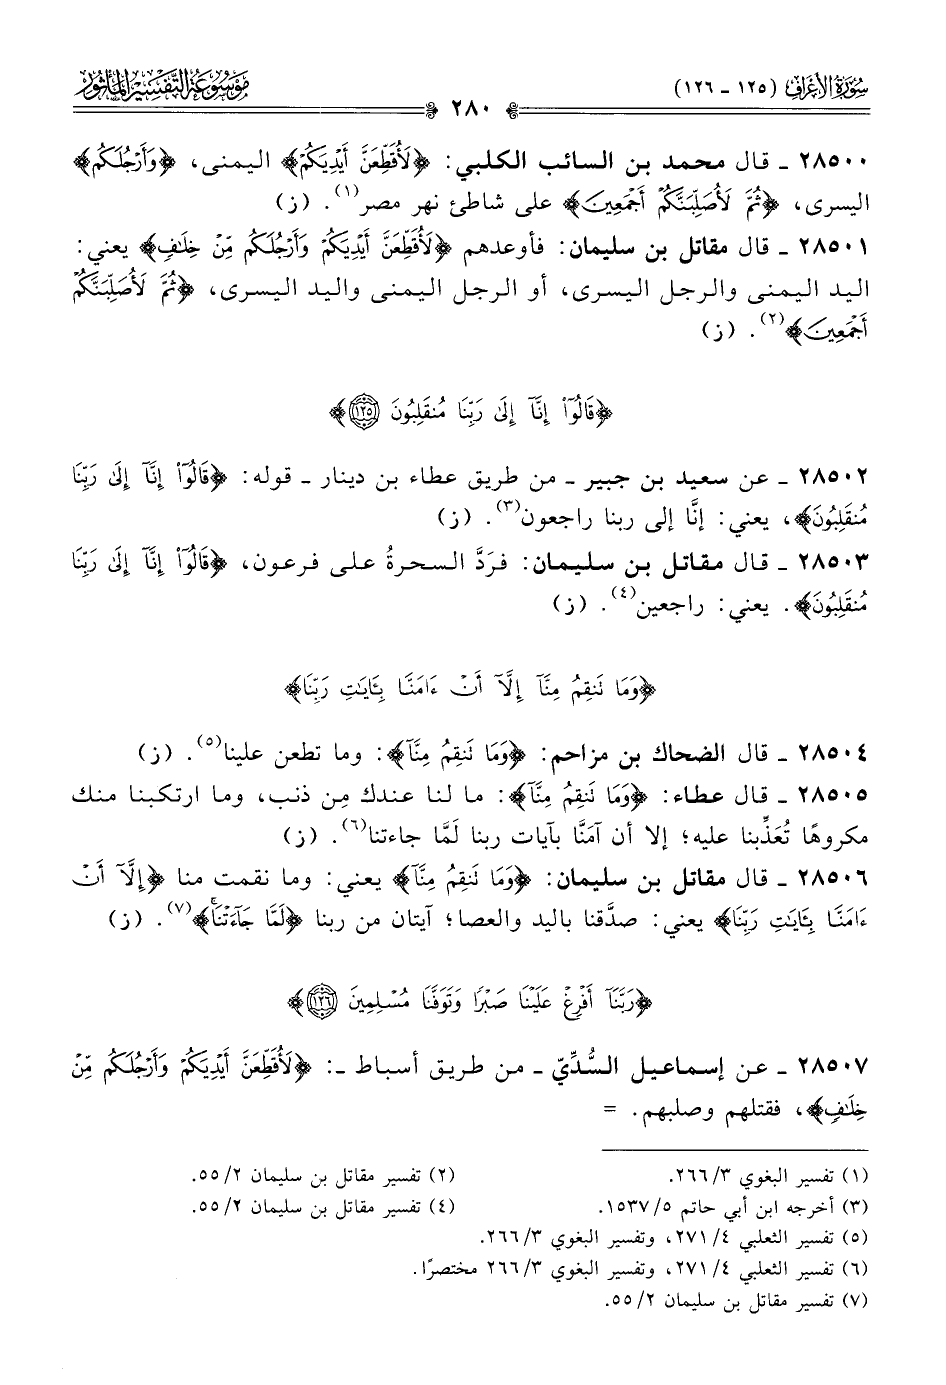 سُورَةُ الأَعْرَافِ (١٢٥ - ١٢٦)
٢٨٠
مَوْسُوعَةُ التَّفْسِيرِ المَأْثُورِ
٢٨٥٠٠ - قال محمد بن السائب الكلبي: ﴿لَأُقَطِّعَنَّ أَيْدِيَكُمْ﴾ اليمنى، ﴿وَأَرْجُلَكُم﴾
اليسرى، ﴿ثُمَّ لَأُصَلِّبَنَّكُمْ أَجْمَعِينَ﴾ على شاطئ نهر مصر(١). (ز)
٢٨٥٠١ - قال مقاتل بن سليمان: فأوعدهم ﴿لَأُقَطِّعَنَّ أَيْدِيَكُمْ وَأَرْجُلَكُم مِّنْ خِلَافٍ﴾ يعني:
اليد اليمنى والرجل اليسرى، أو الرجل اليمنى واليد اليسرى، ﴿ثُمَّ لَأُصَلِّبَنَّكُمْ
أَجْمَعِينَ﴾(٢). (ز)
﴿قَالُوٓا۟ إِنَّآ إِلَىٰ رَبِّنَا مُنقَلِبُونَ ١٢٥﴾
٢٨٥٠٢ - عن سعيد بن جبير - من طريق عطاء بن دينار - قوله: ﴿قَالُوٓا۟ إِنَّآ إِلَىٰ رَبِّنَا
مُنقَلِبُونَ﴾، يعني: إنَّا إلى ربنا راجعون(٣). (ز)
٢٨٥٠٣ - قال مقاتل بن سليمان: فردَّ السحرةُ على فرعون، ﴿قَالُوٓا۟ إِنَّآ إِلَىٰ رَبِّنَا
مُنقَلِبُونَ﴾. يعني: راجعين(٤). (ز)
﴿وَمَا نَنقِمُ مِنَّآ إِلَّآ أَنْ ءَامَنَّا بِـَٔايَـٰتِ رَبِّنَا﴾
٢٨٥٠٤ - قال الضحاك بن مزاحم: ﴿وَمَا نَنقِمُ مِنَّآ﴾: وما تطعن علينا(٥). (ز)
٢٨٥٠٥ - قال عطاء: ﴿وَمَا نَنقِمُ مِنَّآ﴾: ما لنا عندك مِن ذنب، وما ارتكبنا منك
مكروهًا تُعَذِّبنا عليه؛ إلا أن آمَنَّا بآيات ربنا لَمَّا جاءتنا(٦). (ز)
٢٨٥٠٦ - قال مقاتل بن سليمان: ﴿وَمَا نَنقِمُ مِنَّآ﴾ يعني: وما نقمت منا ﴿إِلَّآ أَنْ
ءَامَنَّا بِـَٔايَـٰتِ رَبِّنَا﴾ يعني: صدَّقنا باليد والعصا؛ آيتان من ربنا ﴿لَمَّا جَآءَتْنَا ۚ﴾(٧). (ز)
﴿رَبَّنَآ أَفْرِغْ عَلَيْنَا صَبْرًا وَتَوَفَّنَا مُسْلِمِينَ ١٢٦﴾
٢٨٥٠٧ - عن إسماعيل السُّدِّيّ - من طريق أسباط -: ﴿لَأُقَطِّعَنَّ أَيْدِيَكُمْ وَأَرْجُلَكُم مِّنْ
خِلَافٍ﴾، فقتلهم وصلبهم. =
(١) تفسير البغوي ٣/ ٢٦٦.
(٢) تفسير مقاتل بن سليمان ٢/ ٥٥.
(٣) أخرجه ابن أبي حاتم ٥/ ١٥٣٧.
(٤) تفسير مقاتل بن سليمان ٢/ ٥٥.
(٥) تفسير الثعلبي ٤/ ٢٧١، وتفسير البغوي ٣/ ٢٦٦.
(٦) تفسير الثعلبي ٤/ ٢٧١، وتفسير البغوي ٣/ ٢٦٦ مختصرًا.
(٧) تفسير مقاتل بن سليمان ٢/ ٥٥.